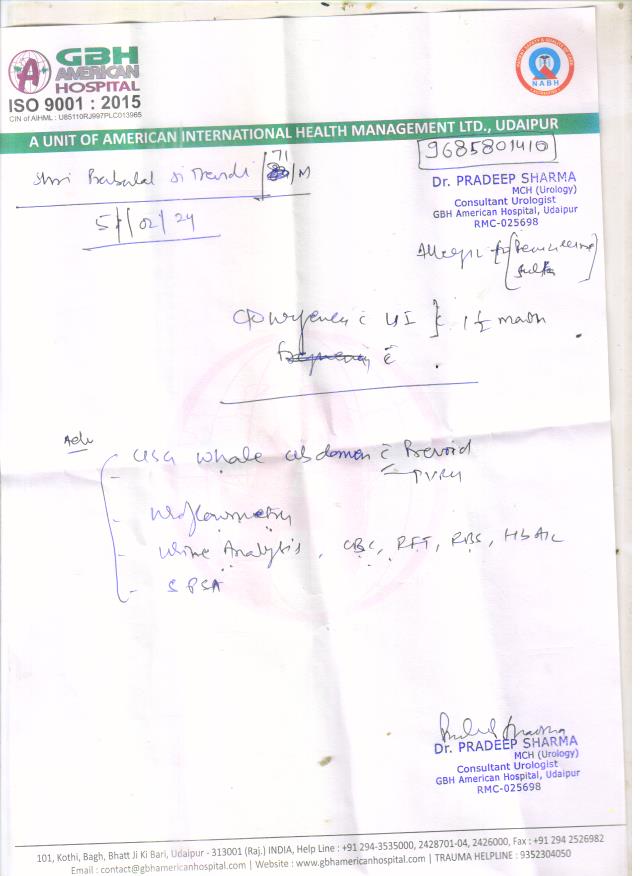 GBH
AMERICAN
HOSPITAL
ISO 9001 : 2015
CIN of AIHML : U85110RJ997PLC013965
NABH
A UNIT OF AMERICAN INTERNATIONAL HEALTH MANAGEMENT LTD., UDAIPUR
9685801410
Shri Babulal Ji 71/M
Dr. PRADEEP SHARMA
MCH (Urology)
Consultant Urologist
GBH American Hospital, Udaipur
RMC-025698
5/02/24
Allergic to
Sulfa
Urgency c UI 1 1/2 month
Adv
USG whole abdomen c Prevoid
- PVRU
- Uroflowmetry
- Urine Analysis, CBC, RFT, RBS, HbA1c
- S PSA
Dr. PRADEEP SHARMA
MCH (Urology)
Consultant Urologist
GBH American Hospital, Udaipur
RMC-025698
101, Kothi, Bagh, Bhatt Ji Ki Bari, Udaipur - 313001 (Raj.) INDIA, Help Line : +91 294-3535000, 2428701-04, 2426000, Fax : +91 294 2526982
Email : contact@gbhamericanhospital.com | Website : www.gbhamericanhospital.com | TRAUMA HELPLINE : 9352304050